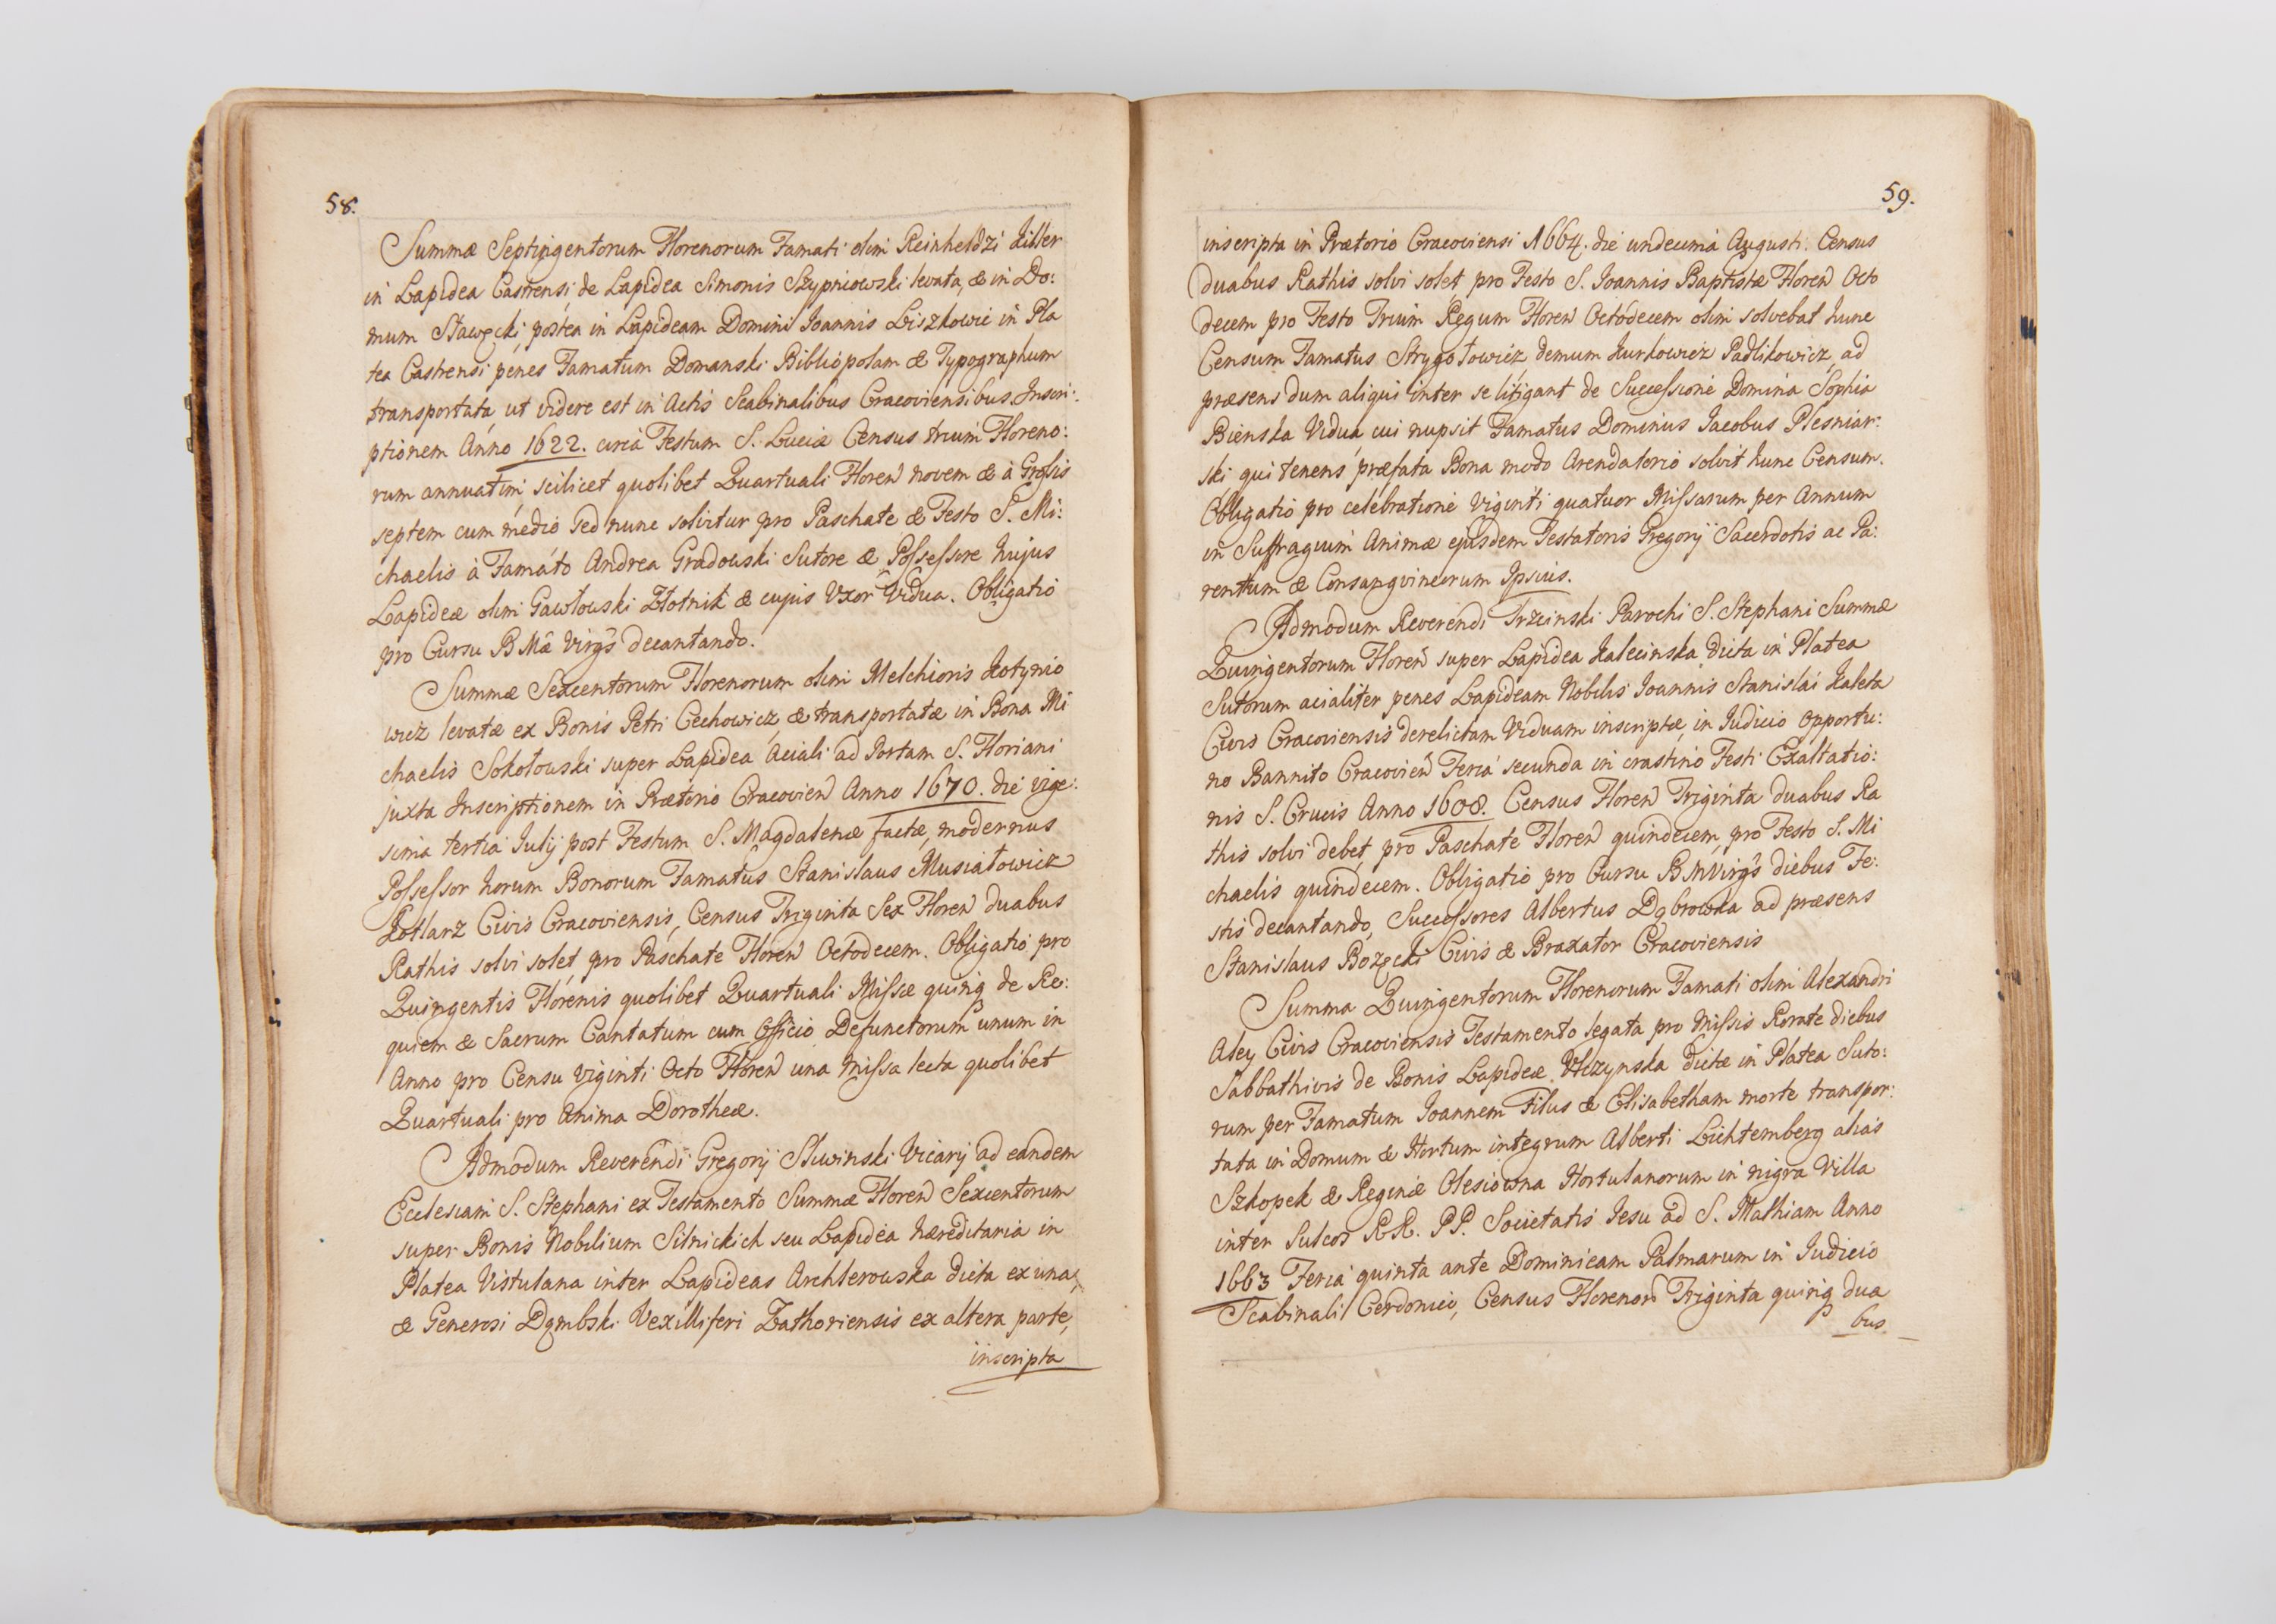 58.
Summæ Septingentorum Florenorum Famati olim Reinheldzi Killer
in Lapidea Castrensi de Lapidea Simonis Szypniowski levata, & in Do:
mum Stawecki, postea in Lapideam Domini Joannis Liszkowic in Pla
tea Castrensi penes Famatum Domanski Bibliopolam & Typographum
transportata, ut videre est in Actis Scabinalibus Cracoviensibus. Inscri:
ptionem Anno 1622. circa Festum S. Luciæ Census trium Floreno:
rum annuatim, scilicet quolibet Quartuali Floren novem & à Grossis
septem cum medio sed nunc solvitur pro Paschate & Festo S. Mi:
chaelis à Famáto Andrea Gradowski Sutore & Possessore hujus
Lapideæ olim Gawłowski Złotnik & cujus Uxor Vidua. Obligatio
pro Cursu B Mæ Virgs decantando.
Summæ Sexcentorum Florenorum olim Melchioris Kotynio
wicz levatæ ex Bonis Petri Cechowicz, & transportatæ in Bona Mi
chaelis Sokołowski super Lapidea Aciali ad Portam S. Floriani
juxta Inscriptionem in Prætorio Cracovien Anno 1670. die vige:
sima tertia Julij post Festum S. Magdalenæ factæ, modernus
Possessor horum Bonorum Famatus Stanislaus Musiałowicz
Kotlarz Civis Cracoviensis, Census Triginta Sex Floren duabus
Rathis solvi solet, pro Paschate Floren Octodecem. Obligatio pro
Quingentis Florenis quolibet Quartuali Missæ quinq de Re:
quiem & Sacrum Cantatum cum Officio Defunctorum unum in
Anno pro Censu Viginti Octo Floren una Missa lecta quolibet
Quartuali pro Anima Dorotheæ.
Admodum Reverendi Gregorij Sliwinski Vicarij ad eandem
Ecclesiam S. Stephani ex Testamento Summæ Floren Sexcentorum
super Bonis Nobilium Sitnickich seu Lapidea hæreditaria in
Platea Vistulana inter Lapideas Archlerowska dicta ex una,
& Generosi Dąmbski Vexilliferi Zathoriensis ex altera parte,
inscripta
59.
inscripta in Prætorio Cracoviensi 1664. die undecima Augusti. Census
duabus Rathis solvi solet, pro Festo S. Joannis Baptistæ Floren Octo
decem pro Festo Trium Regum Floren Octodecem olim solvebat hunc
Censum Famatus Strygołowicz, demum Kurkowicz Padlikowicz, ad
præsens dum aliqui inter se litigant de Successione Domina Sophia
Bienska Vidua, cui nupsit Famatus Dominus Jacobus Plesniar:
ski, qui tenens præfata Bona modo Arendatorio solvit hunc Censum.
Obligatio pro celebratione viginti quatuor Missarum per Annum
in Suffragium Animæ ejusdem Testatoris Gregorij Sacerdotis ac Pa:
rentum & Consangvineorum Ipsius.
Admodum Reverendi Trzcinski Parochi S. Stephani Summæ
Quingentorum Floren super Lapidea Kalecinska dicta in Platea
Sutorum acialiter penes Lapideam Nobilis Joannis Stanislai Kaleta
Civis Cracoviensis derelictam Viduam inscriptæ, in Judicio Opportu:
no Bannito Cracovien Feria secunda in crastino Festi Exaltatio:
nis S. Crucis Anno 1608. Census Floren Triginta duabus Ra
this solvi debet, pro Paschate Floren quindecem, pro Festo S. Mi
chaelis quindecem. Obligatio pro Cursu B M Virgs diebus Fe:
stis decantando, Successores Albertus Dąbrowka ad præsens
Stanislaus Bozęcki Civis & Braxator Cracoviensis
Summa Quingentorum Florenorum Famati olim Alexandri
Aley Civis Cracoviensis Testamento legata pro Missis Rorate diebus
Sabbathivis de Bonis Lapideæ Ulczynska dictæ in Platea Suto:
rum per Famatum Joannem Filus & Elisabetham morte transpor:
tata in Domum & Hortum integrum Alberti Lichtemberg alias
Szkopek & Reginæ Olesiowna Hortulanorum in nigra Villa
inter Sulcos RR. PP. Societatis Jesu ad S. Mathiam Anno
1663 Feria quinta ante Dominicam Palmarum in Judicio
Scabinali Cerdonico, Census Florenorũ Triginta quinq dua
bus